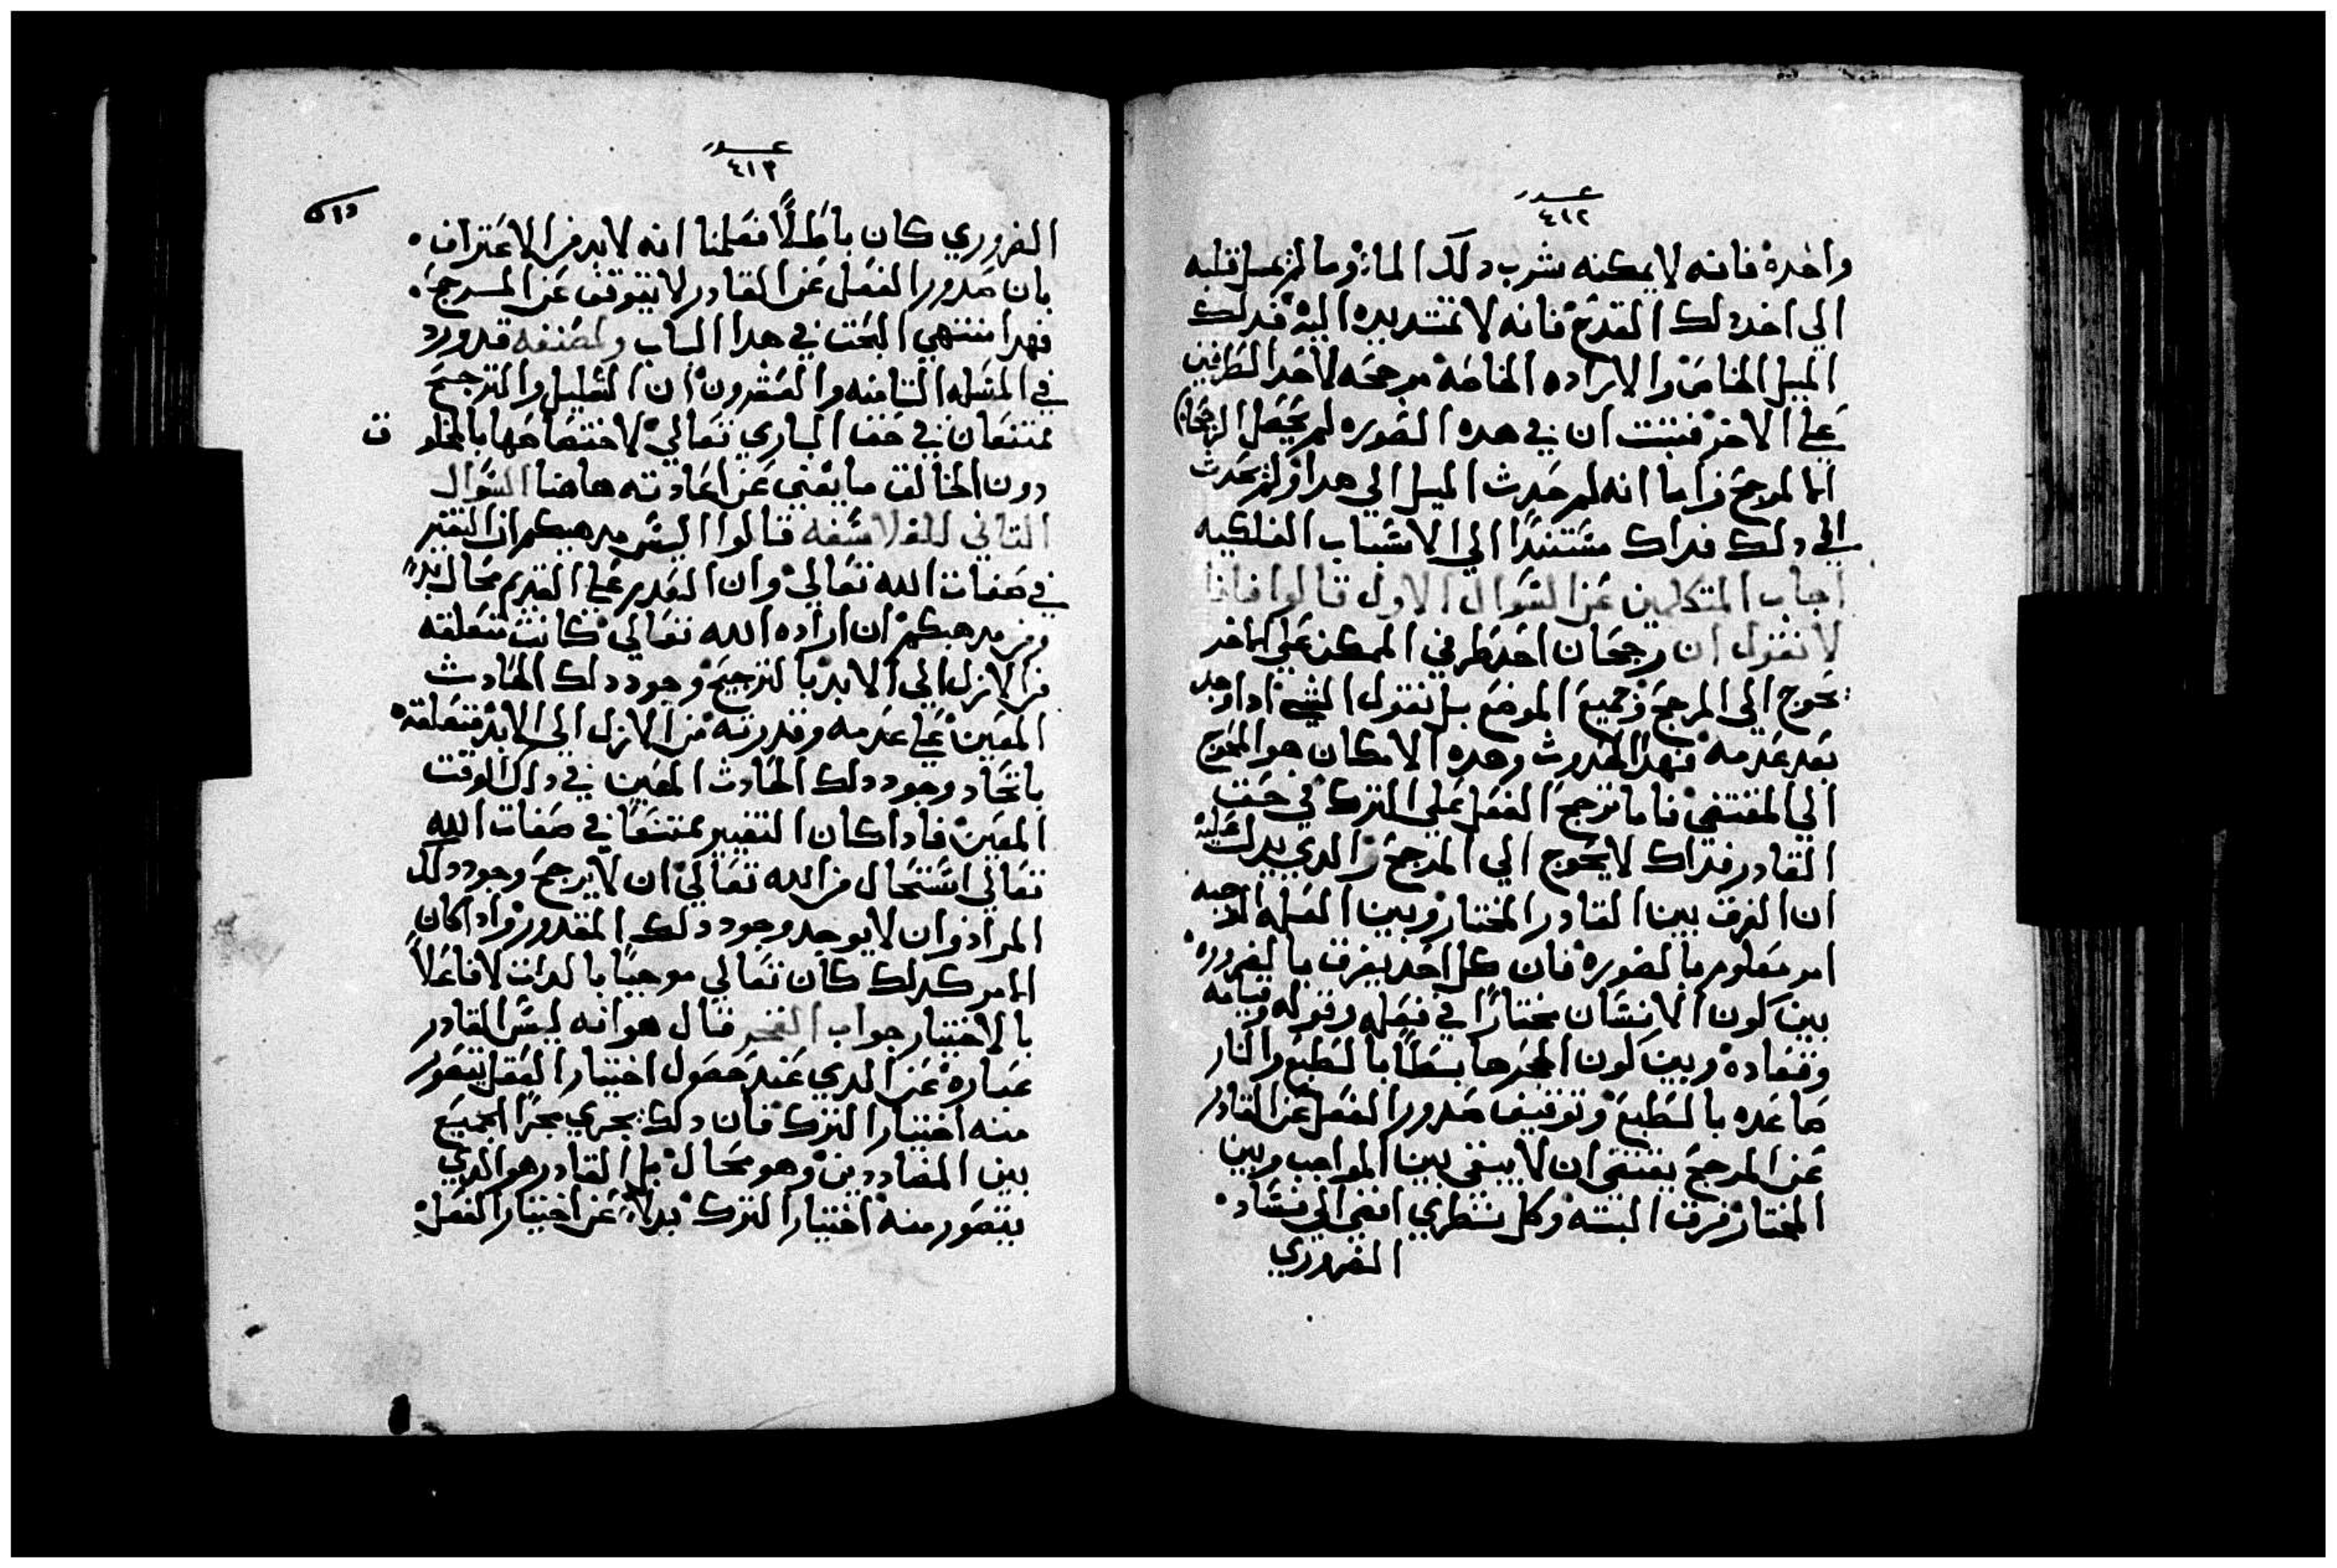 عدد
٤١٢
واحده فانه لا يمكنه شرب دلك الماء وما لم يميل قلبه
الي اخد دلك القدح فانه لا تمتد يده اليه فدلك
الميل الخاص والاراده الخاصه مرجحه لاحد الطرفين
علي الاخر فتبت ان في هده الصوره لم يحصل الرجحان
الا لمرجح واما انه لم حدث الميل الي هدا ولم يحدث
الي دلك فداك مستندًا الي الاسباب الفلكيه
اجاب المتكلمين عن السوال الاول قالوا فاننا
لا نقول ان رجحان احد طرفي الممكن علي الاخر
يحوج الي المرجح في جميع الموضع بل نقول الشي ادا وجد
بعد عدمه فهدا الحدوث وهده الامكان هو المحوج
الي المقتضي فاما ترجح الفعل علي الترك في حق
القادر فداك لا يحوج الي المرجح والدي يدل عليه
ان الفرق بين القادر المختار وبين العله الموجبه
امر معلوم بالضوره فان كل احد يفرق بالضروره
بين كون الانسان مختارًا في فعله وقوله وقيامه
وقعاده وبين كون الحجر هابطًا بالطبع والنار
صاعده بالطبع وتوقيف صدور الفعل عن القادر
عن المرجح يقتضي ان لا يبقي بين المواجب وبين
المختار فرق البته وكل نظري افضي الي فساد
الضروري
عدد
٤١٣
الضروري كان باطلًا فعلمنا انه لا بد من الاعتراف
بان صدور الفعل عن القادر لا يتوقف عن المرجح
فهدا منتهي البحت في هدا الباب ولمصنفه قد ورد
في المسله التامنه والعشرون ان التعليل والترجيح
ممتنعان في حق الباري تعالي لاختصاصها بالمخلو ق
دون الخالق ما يغني عن اعادته هاهنا السوال
التاني للفلاسفه قالوا اليس مدهبكم ان التغير
في صفات الله تعالي وان التعدير علي القديم محال
ومن مدهبكم ان اراده الله تعالي كانت متعلقه
من الازل الي الابد بالترجيح وجود دلك الحادث
المعين علي عدمه وقدرته من الازل الي الابد متعلقه
باتحاد وجود دلك الحادث المعين في دلك الوقت
المعين فادا كان التغيير ممتنعًا في صفات الله
تعالي استحال من الله تعالي ان لا يرجح وجود دلك
المراد وان لا يوجد وجود دلك المقدور وادا كان
الامر كدلك كان تعالي موجبًا بالدات لا فاعلًا
بالاختيار جواب الفخر قال هو انه ليس القادر
عباره عن الدي عند حصول اختيار الفعل يتصور
منه اختيار الترك فان دلك يجري مجرا الجميع
بين المضاددين وهو محال بل القادر هو الدي
يتصور منه اختيار الترك بدلًا عن اختيار الفعل